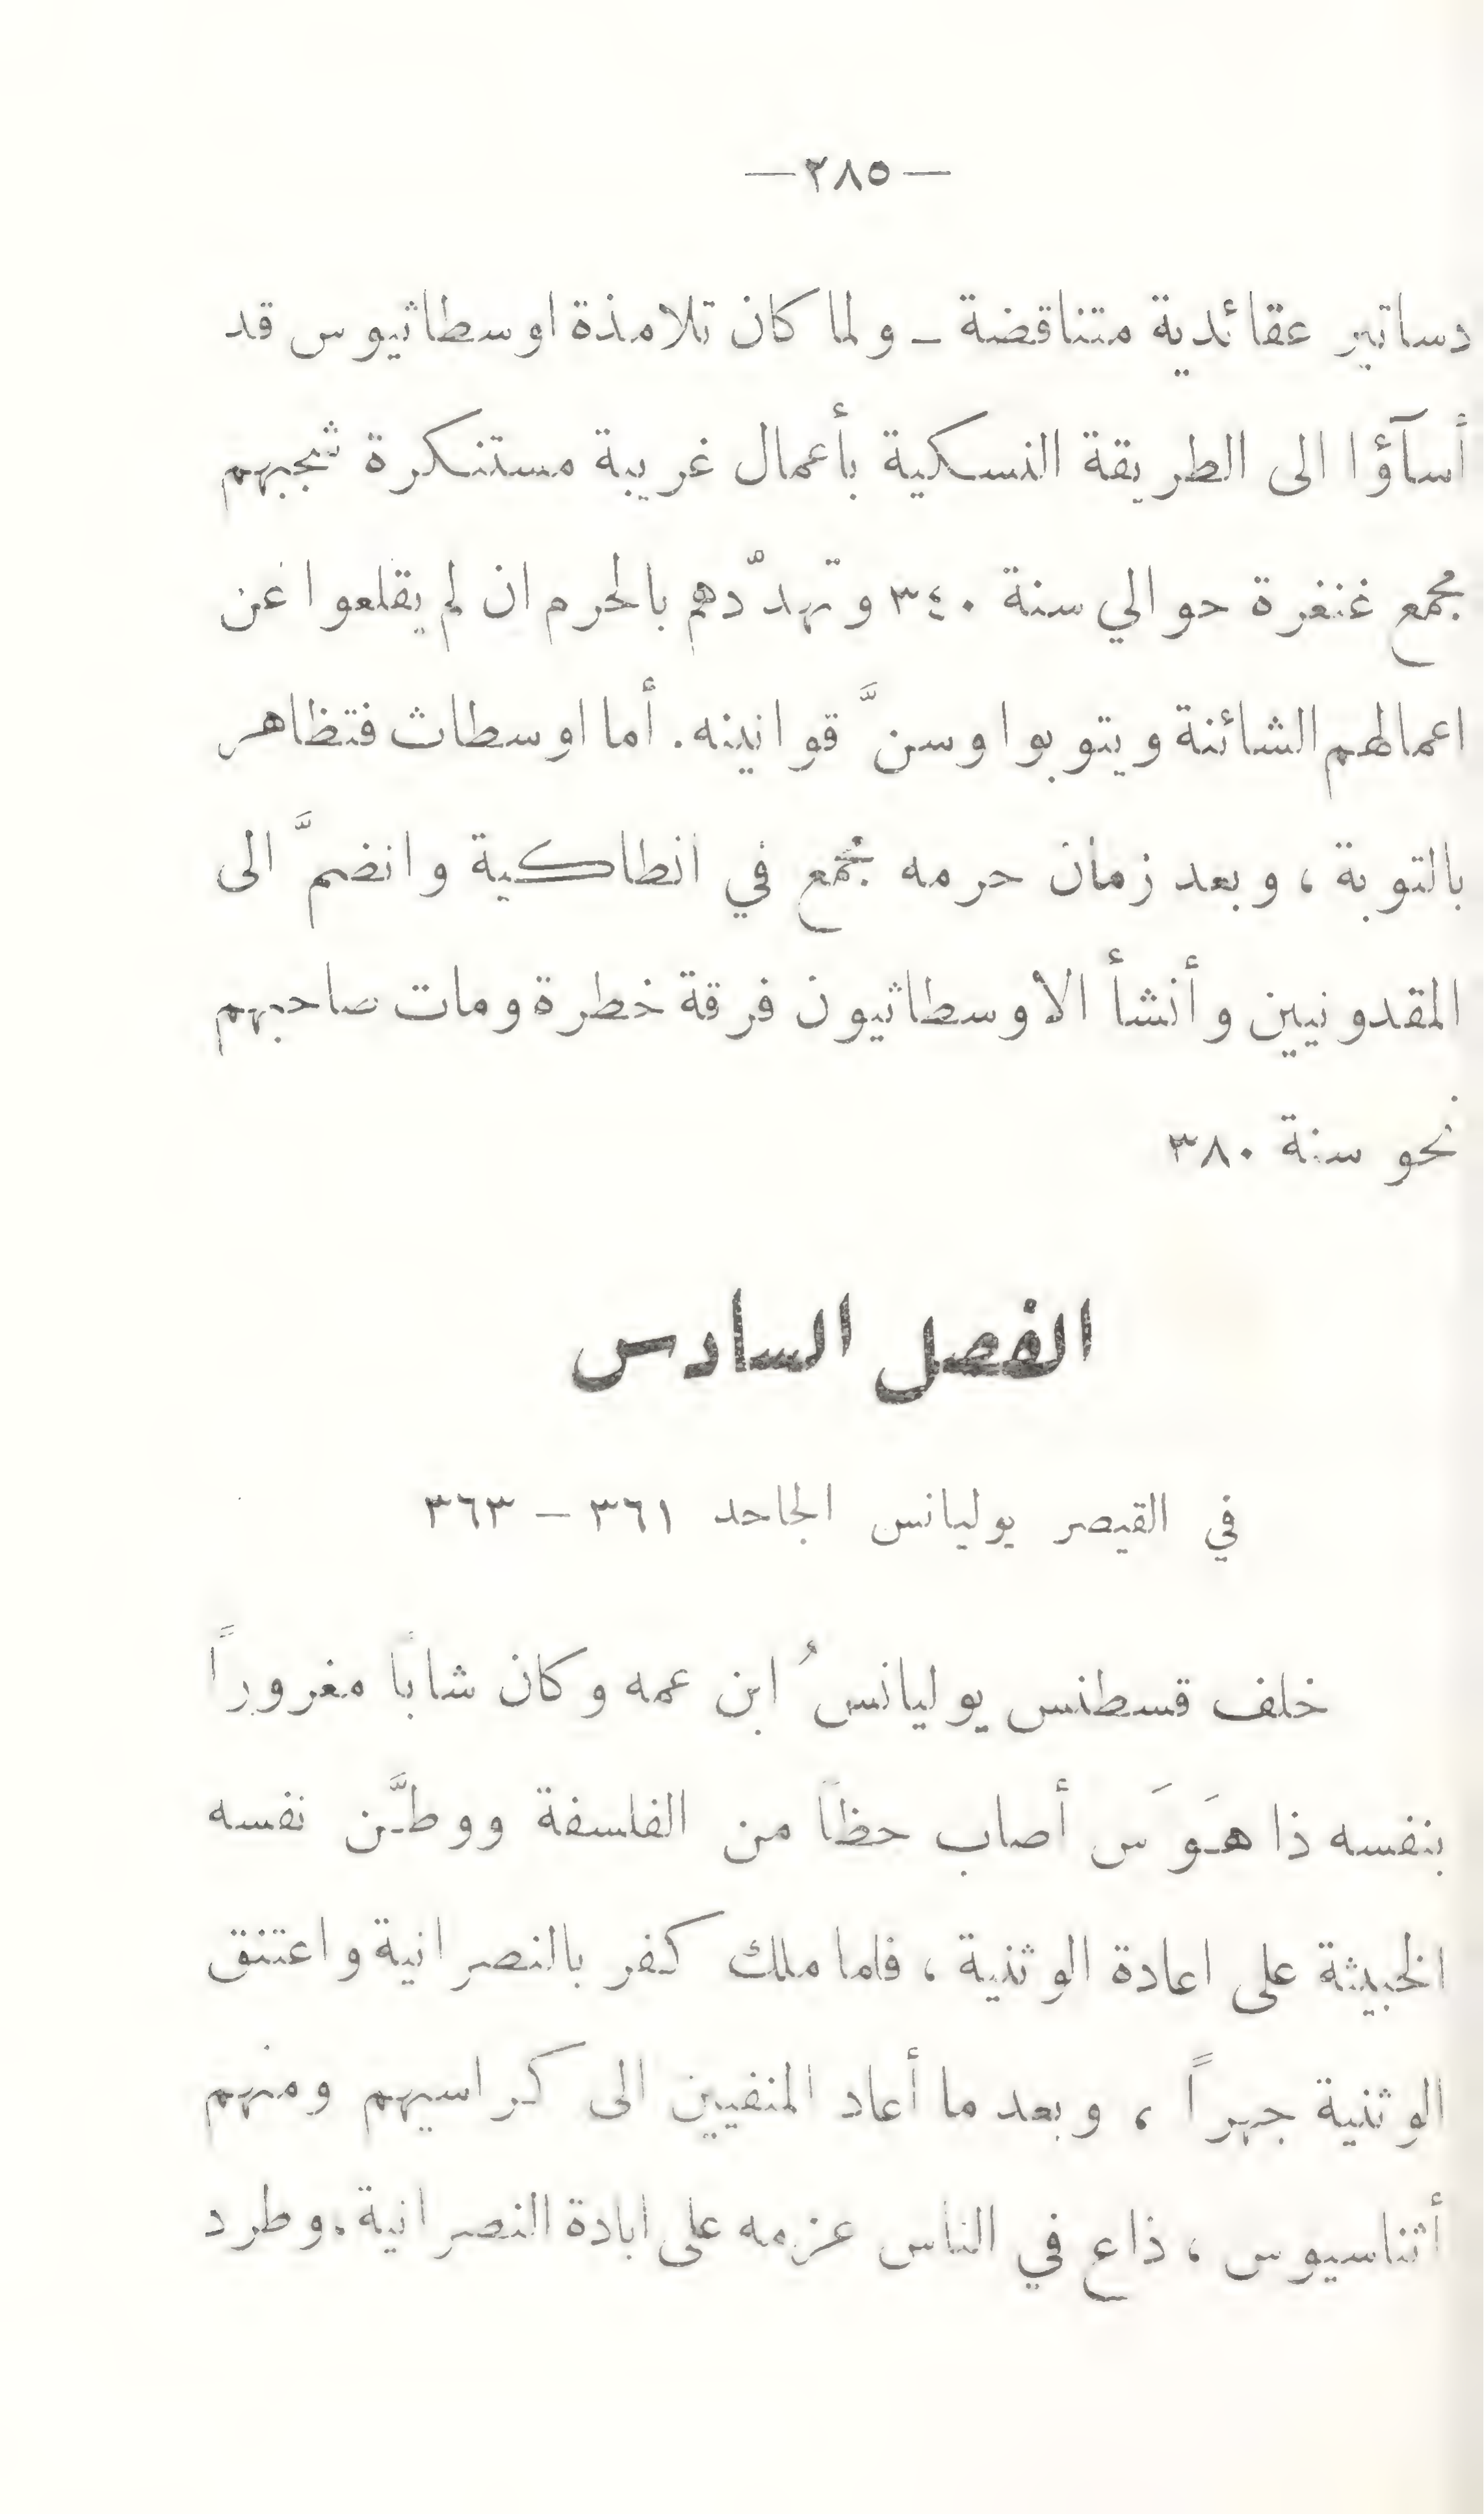 —٢٨٥—
دساتير عقائدية متناقضة ــ ولما كان تلامذة اوسطاثيوس قد
أسآؤا الى الطريقة النسكية بأعمال غريبة مستنكرة شجبهم
مجمع غنغرة حوالي سنة ٣٤٠ وتهدّدهم بالحرم ان لم يقلعوا عن
اعمالهم الشائنة ويتوبوا وسنَّ قوانينه. أما اوسطاث فتظاهر
بالتوبة ، وبعد زمان حرمه مجمع في انطاكية وانضمَّ الى
المقدونيين وأنشأ الاوسطاثيون فرقة خطرة ومات صاحبهم
نحو سنة ٣٨٠
الفصل السادس
في القيصر يوليانس الجاحد ٣٦١ – ٣٦٣
خلف قسطنس يوليانسُ ابن عمه وكان شاباً مغروراً
بنفسه ذا هَوَس أصاب حظاً من الفلسفة ووطَّن نفسه
الخبيثة على اعادة الوثنية ، فلما ملك كفر بالنصرانية واعتنق
الوثنية جهراً ، وبعد ما أعاد المنفيين الى كراسيهم ومنهم
أثناسيوس ، ذاع في الناس عزمه على ابادة النصرانية. وطرد